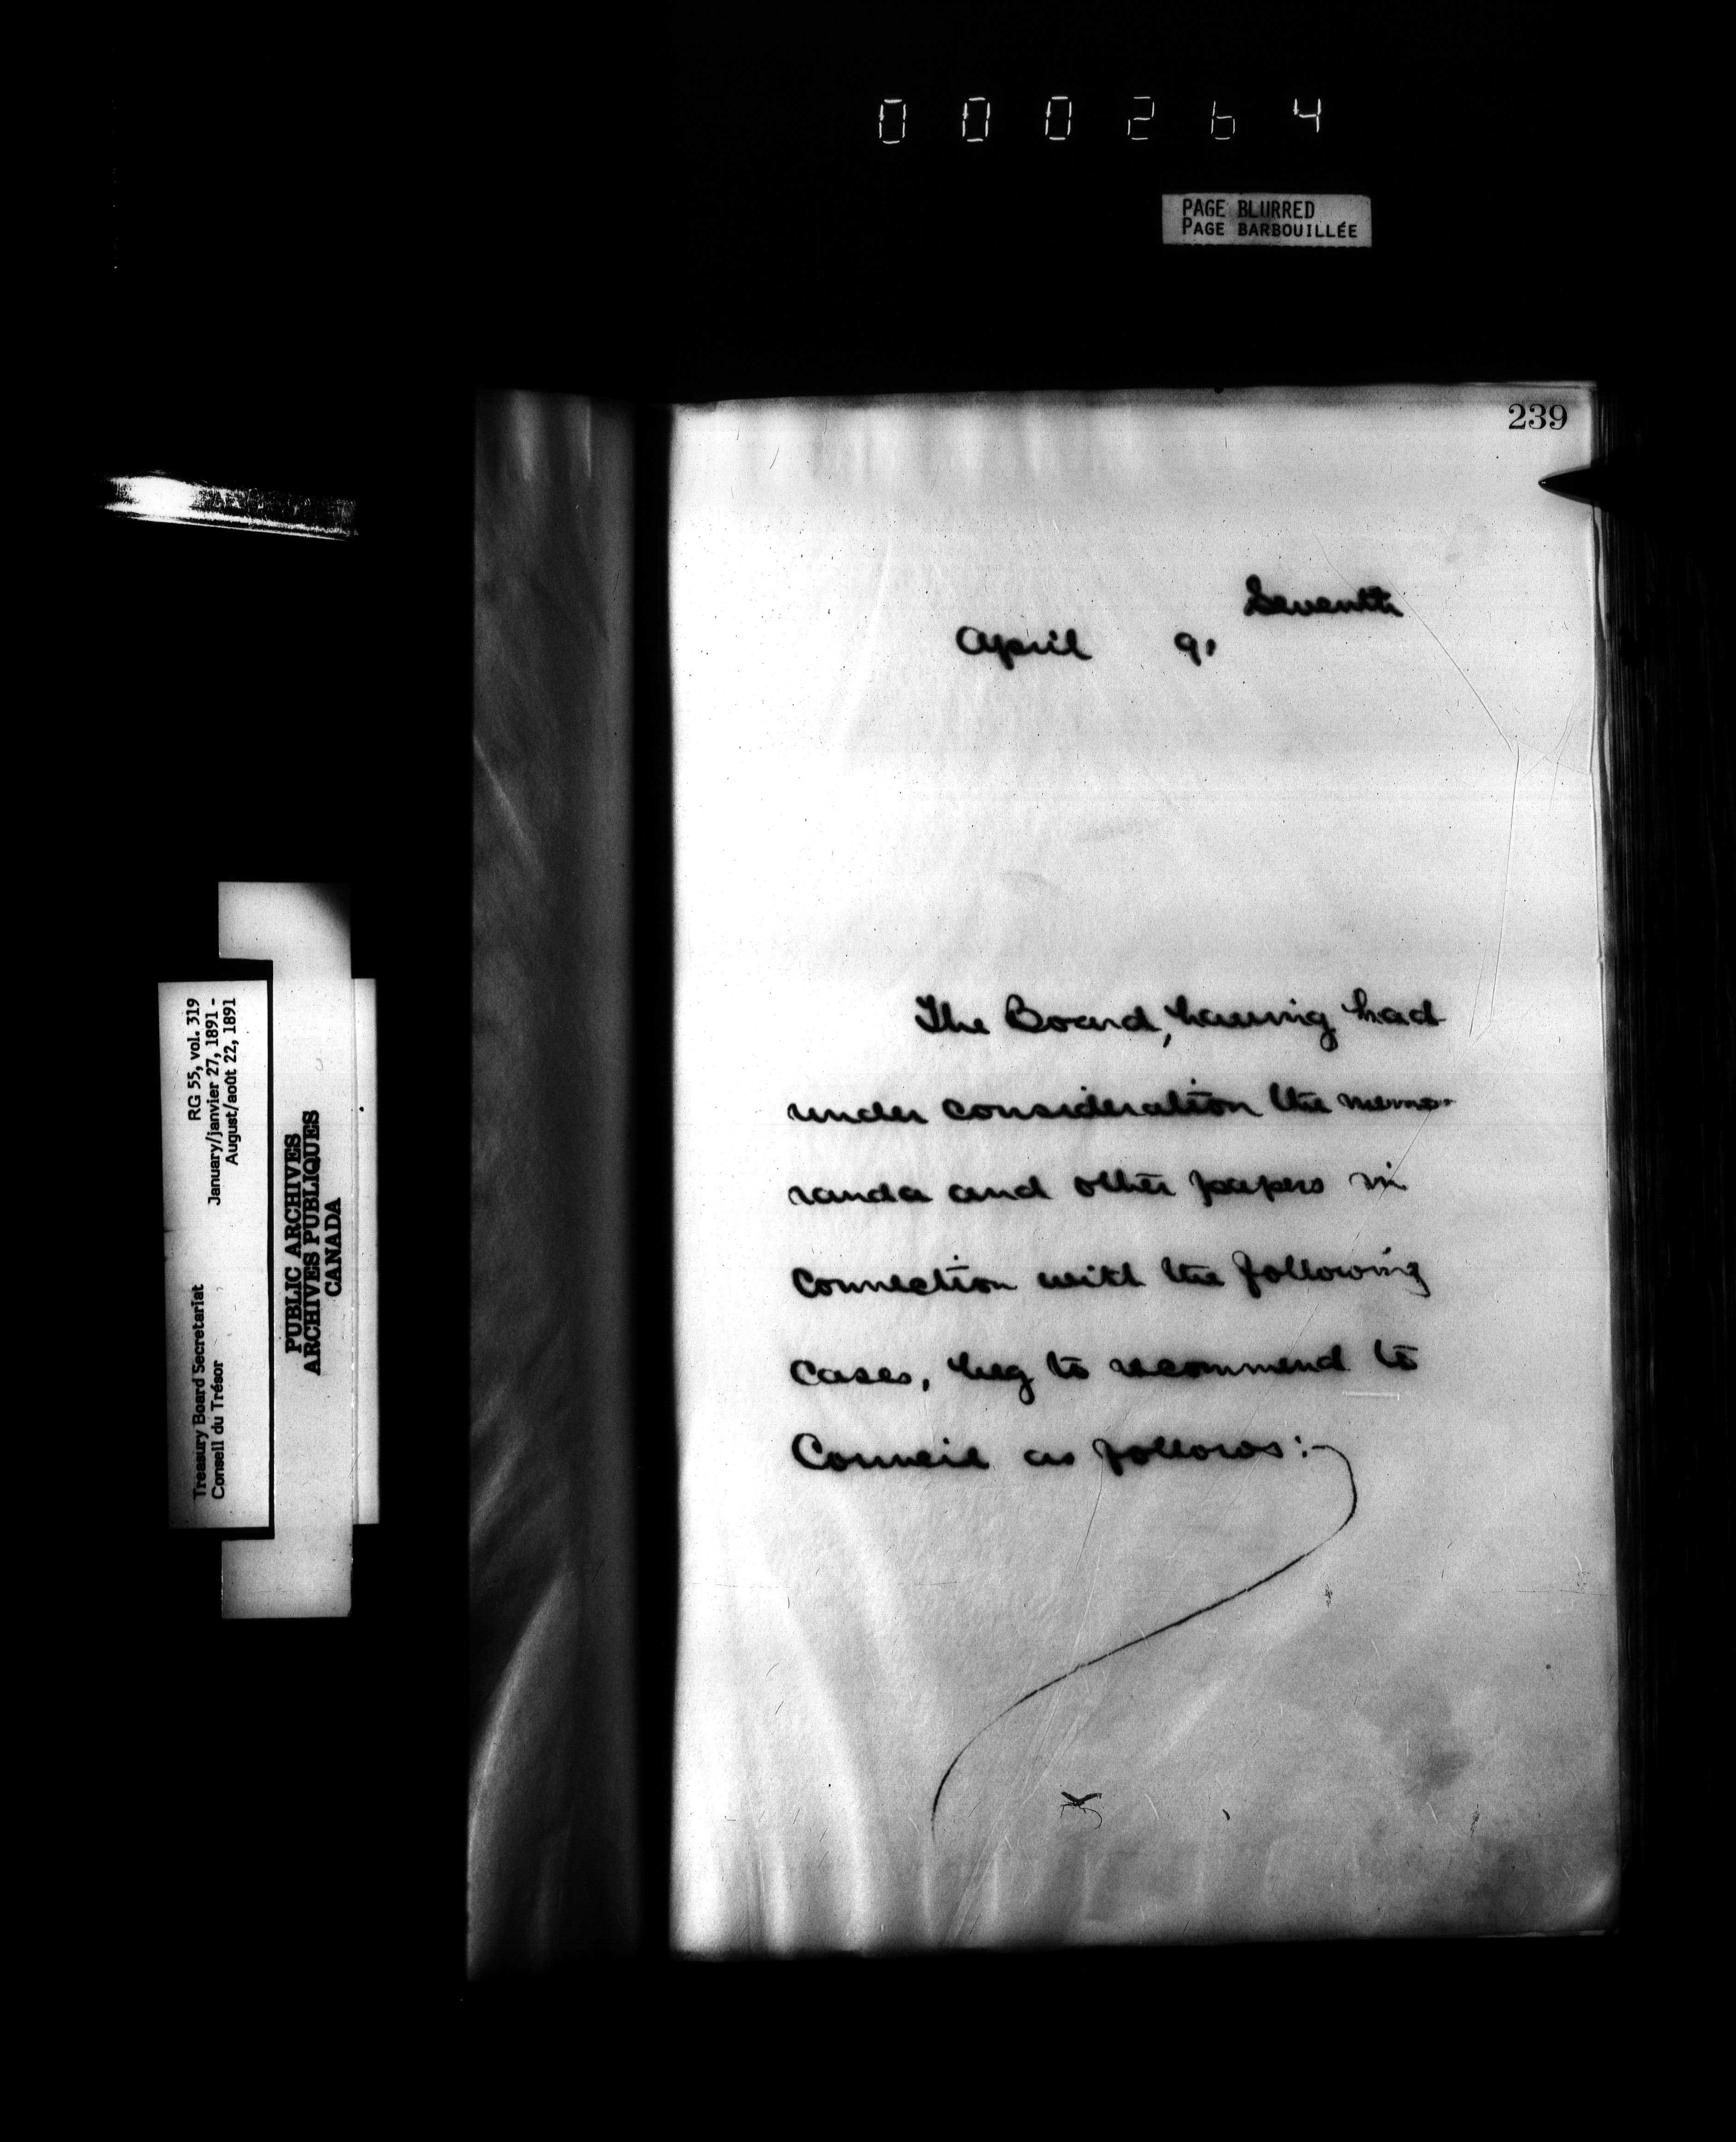 000264
PAGE BLURRED
PAGE BARBOUILLÉE
239
Seventh
April 91
The Board, having had
under consideration the memo-
randa and other papers in
connection with the following
cases, beg to recommend to
Council as follows:-
RG 55, vol. 319
January/janvier 27, 1891 -
August/août 22, 1891
Treasury Board Secretariat
Conseil du Trésor
PUBLIC ARCHIVES
ARCHIVES PUBLIQUES
CANADA